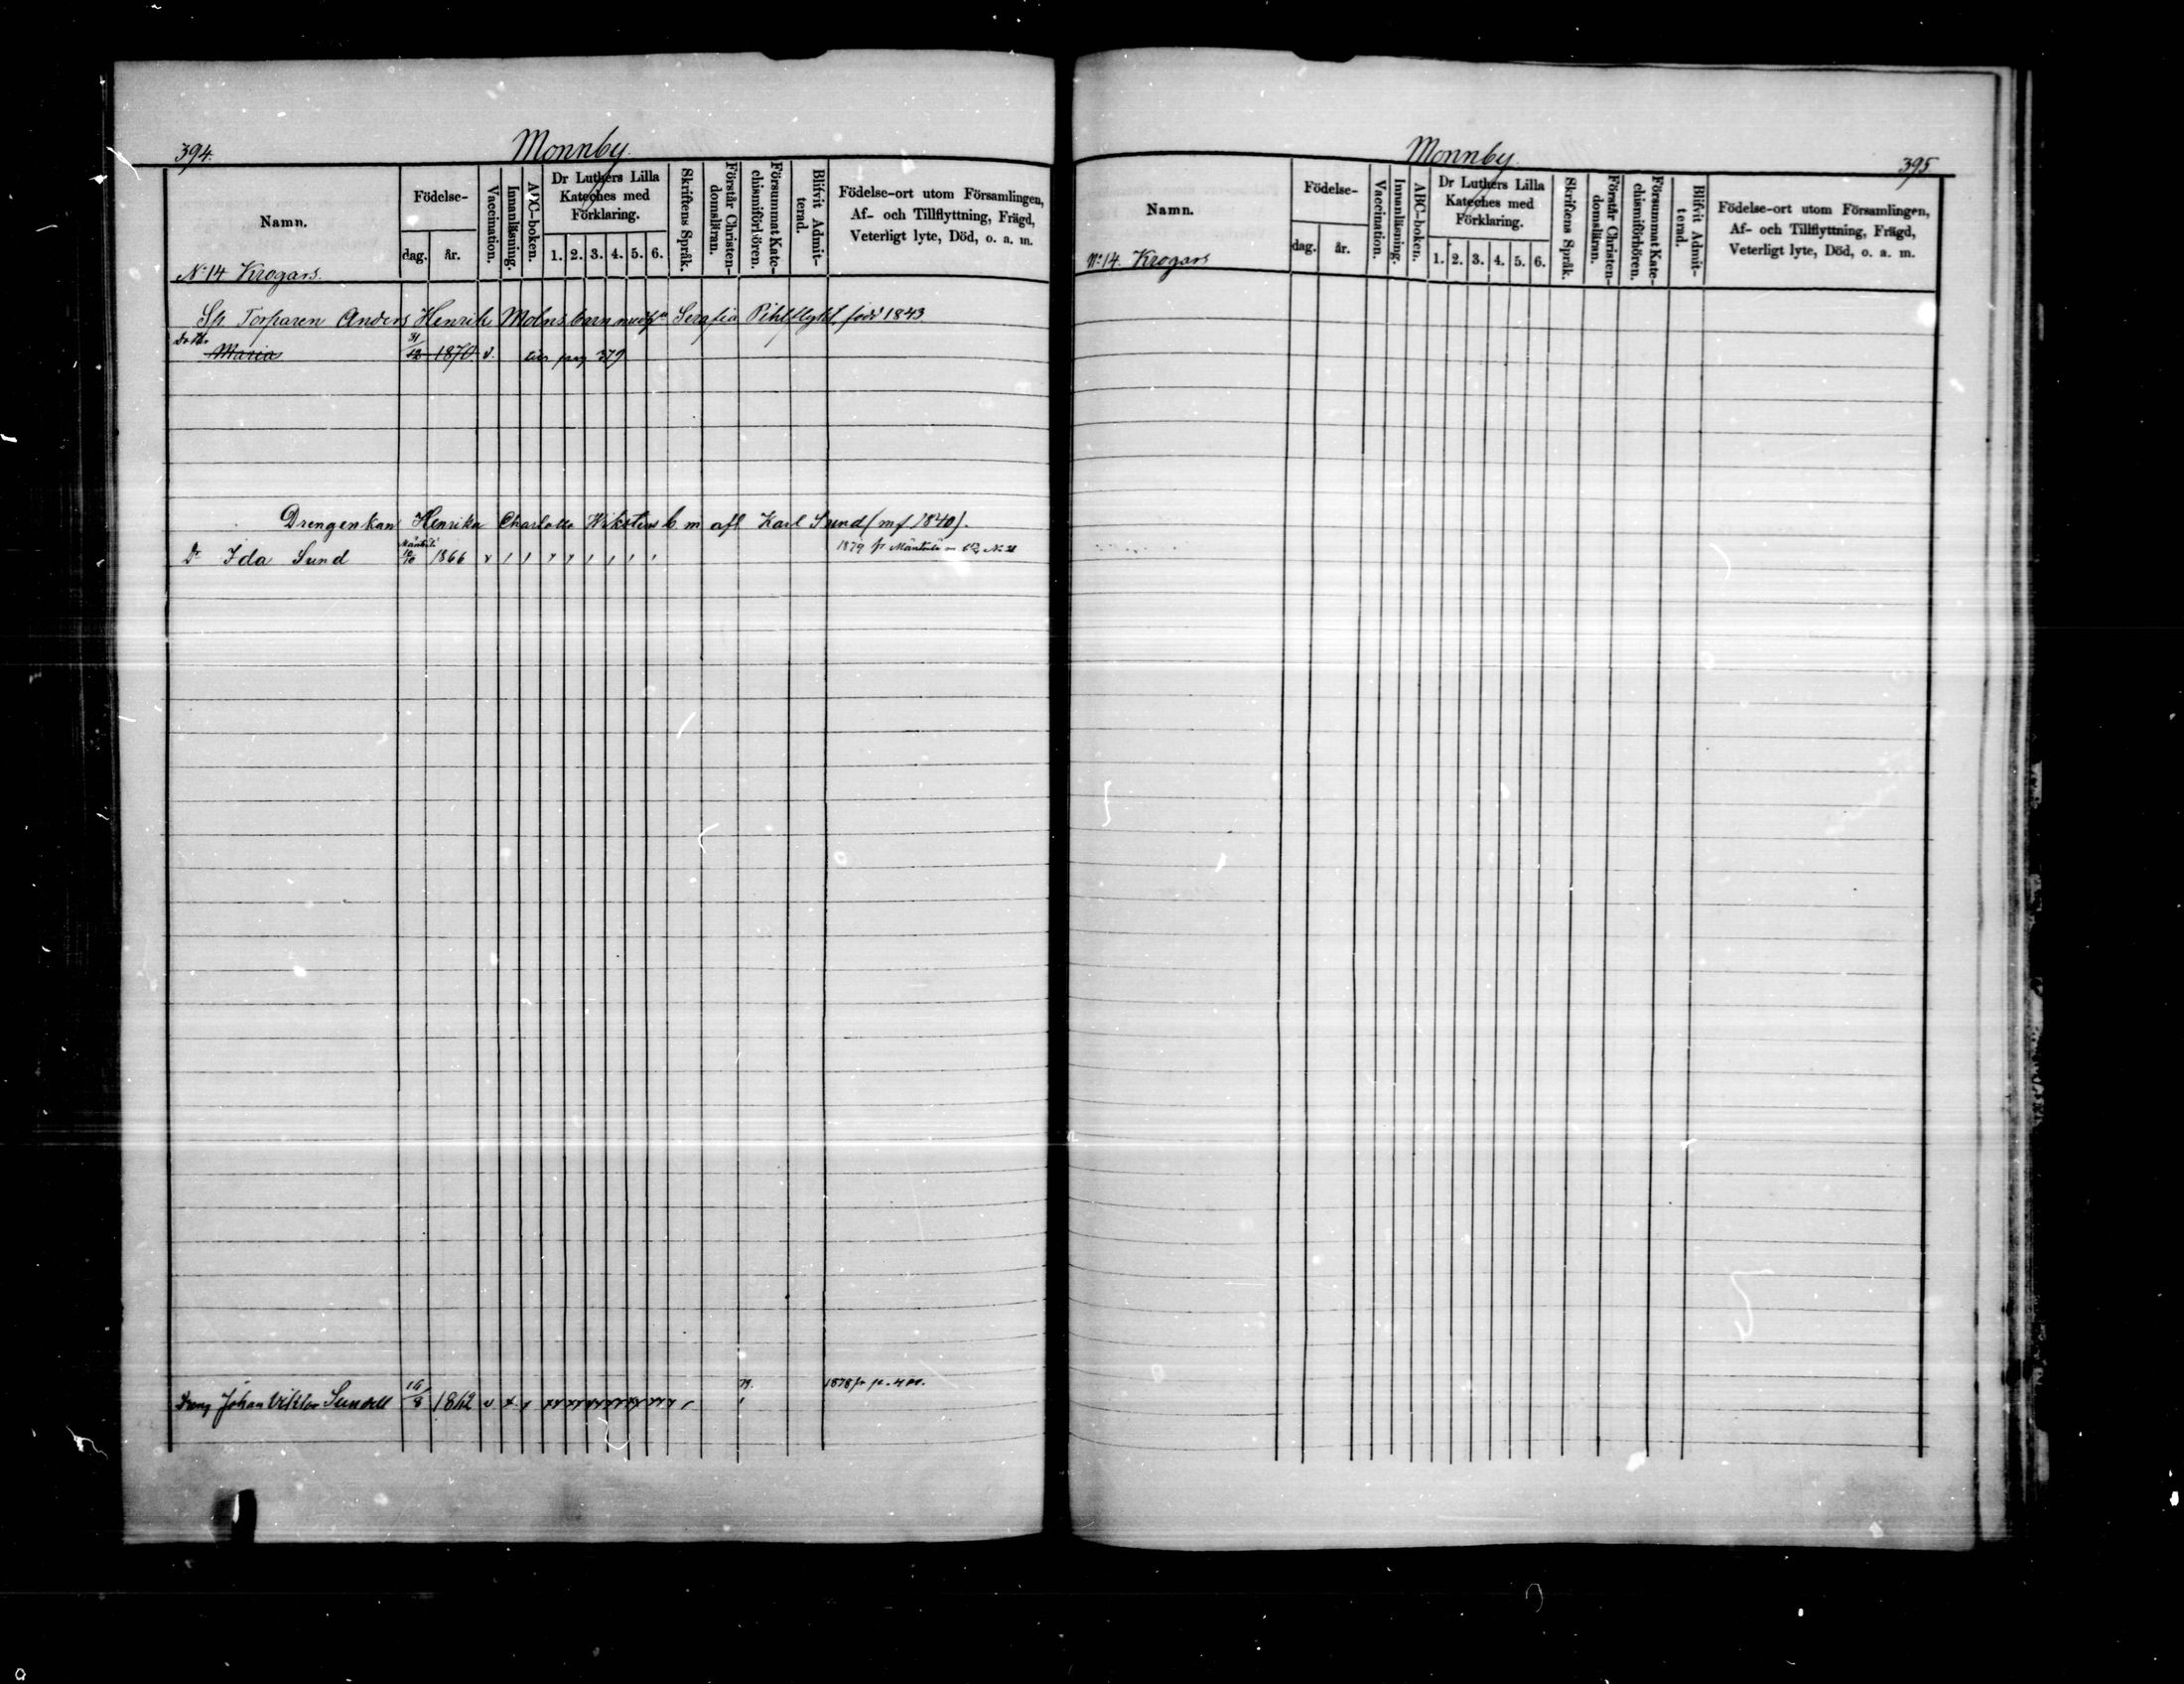 394.
Monnby.
Namn.
Födelse-
dag.
år.
Vaccination.
Innanläsning.
ABC-boken.
Dr Luthers Lilla
Kateches med
Förklaring.
1. 2. 3. 4. 5. 6.
Skriftens Språk.
Förstår Christen-
domsläran.
Försummat Kate-
chismiförhören.
Blifvit Admit-
terad.
Födelse-ort utom Församlingen,
Af- och Tillflyttning, Frägd,
Veterligt lyte, Död, o. a. m.
No 14 Krogars.
Torparen Anders Henrik Molns barn Serafia född 1843
Maria 31/12 1870 v. pag 379
Drengenkan Henrika Charlotta b m afl Karl Sund (m f 1840).
Dr Ida Sund 1866 v
1879 fr
Johan Viktor Sundell 1862 v
1878 fr p.
Monnby.
395
Namn.
Födelse-
dag.
år.
Vaccination.
Innanläsning.
ABC-boken.
Dr Luthers Lilla
Kateches med
Förklaring.
1. 2. 3. 4. 5. 6.
Skriftens Språk.
Förstår Christen-
domsläran.
Försummat Kate-
chismiförhören.
Blifvit Admit-
terad.
Födelse-ort utom Församlingen,
Af- och Tillflyttning, Frägd,
Veterligt lyte, Död, o. a. m.
No 14. Krogars